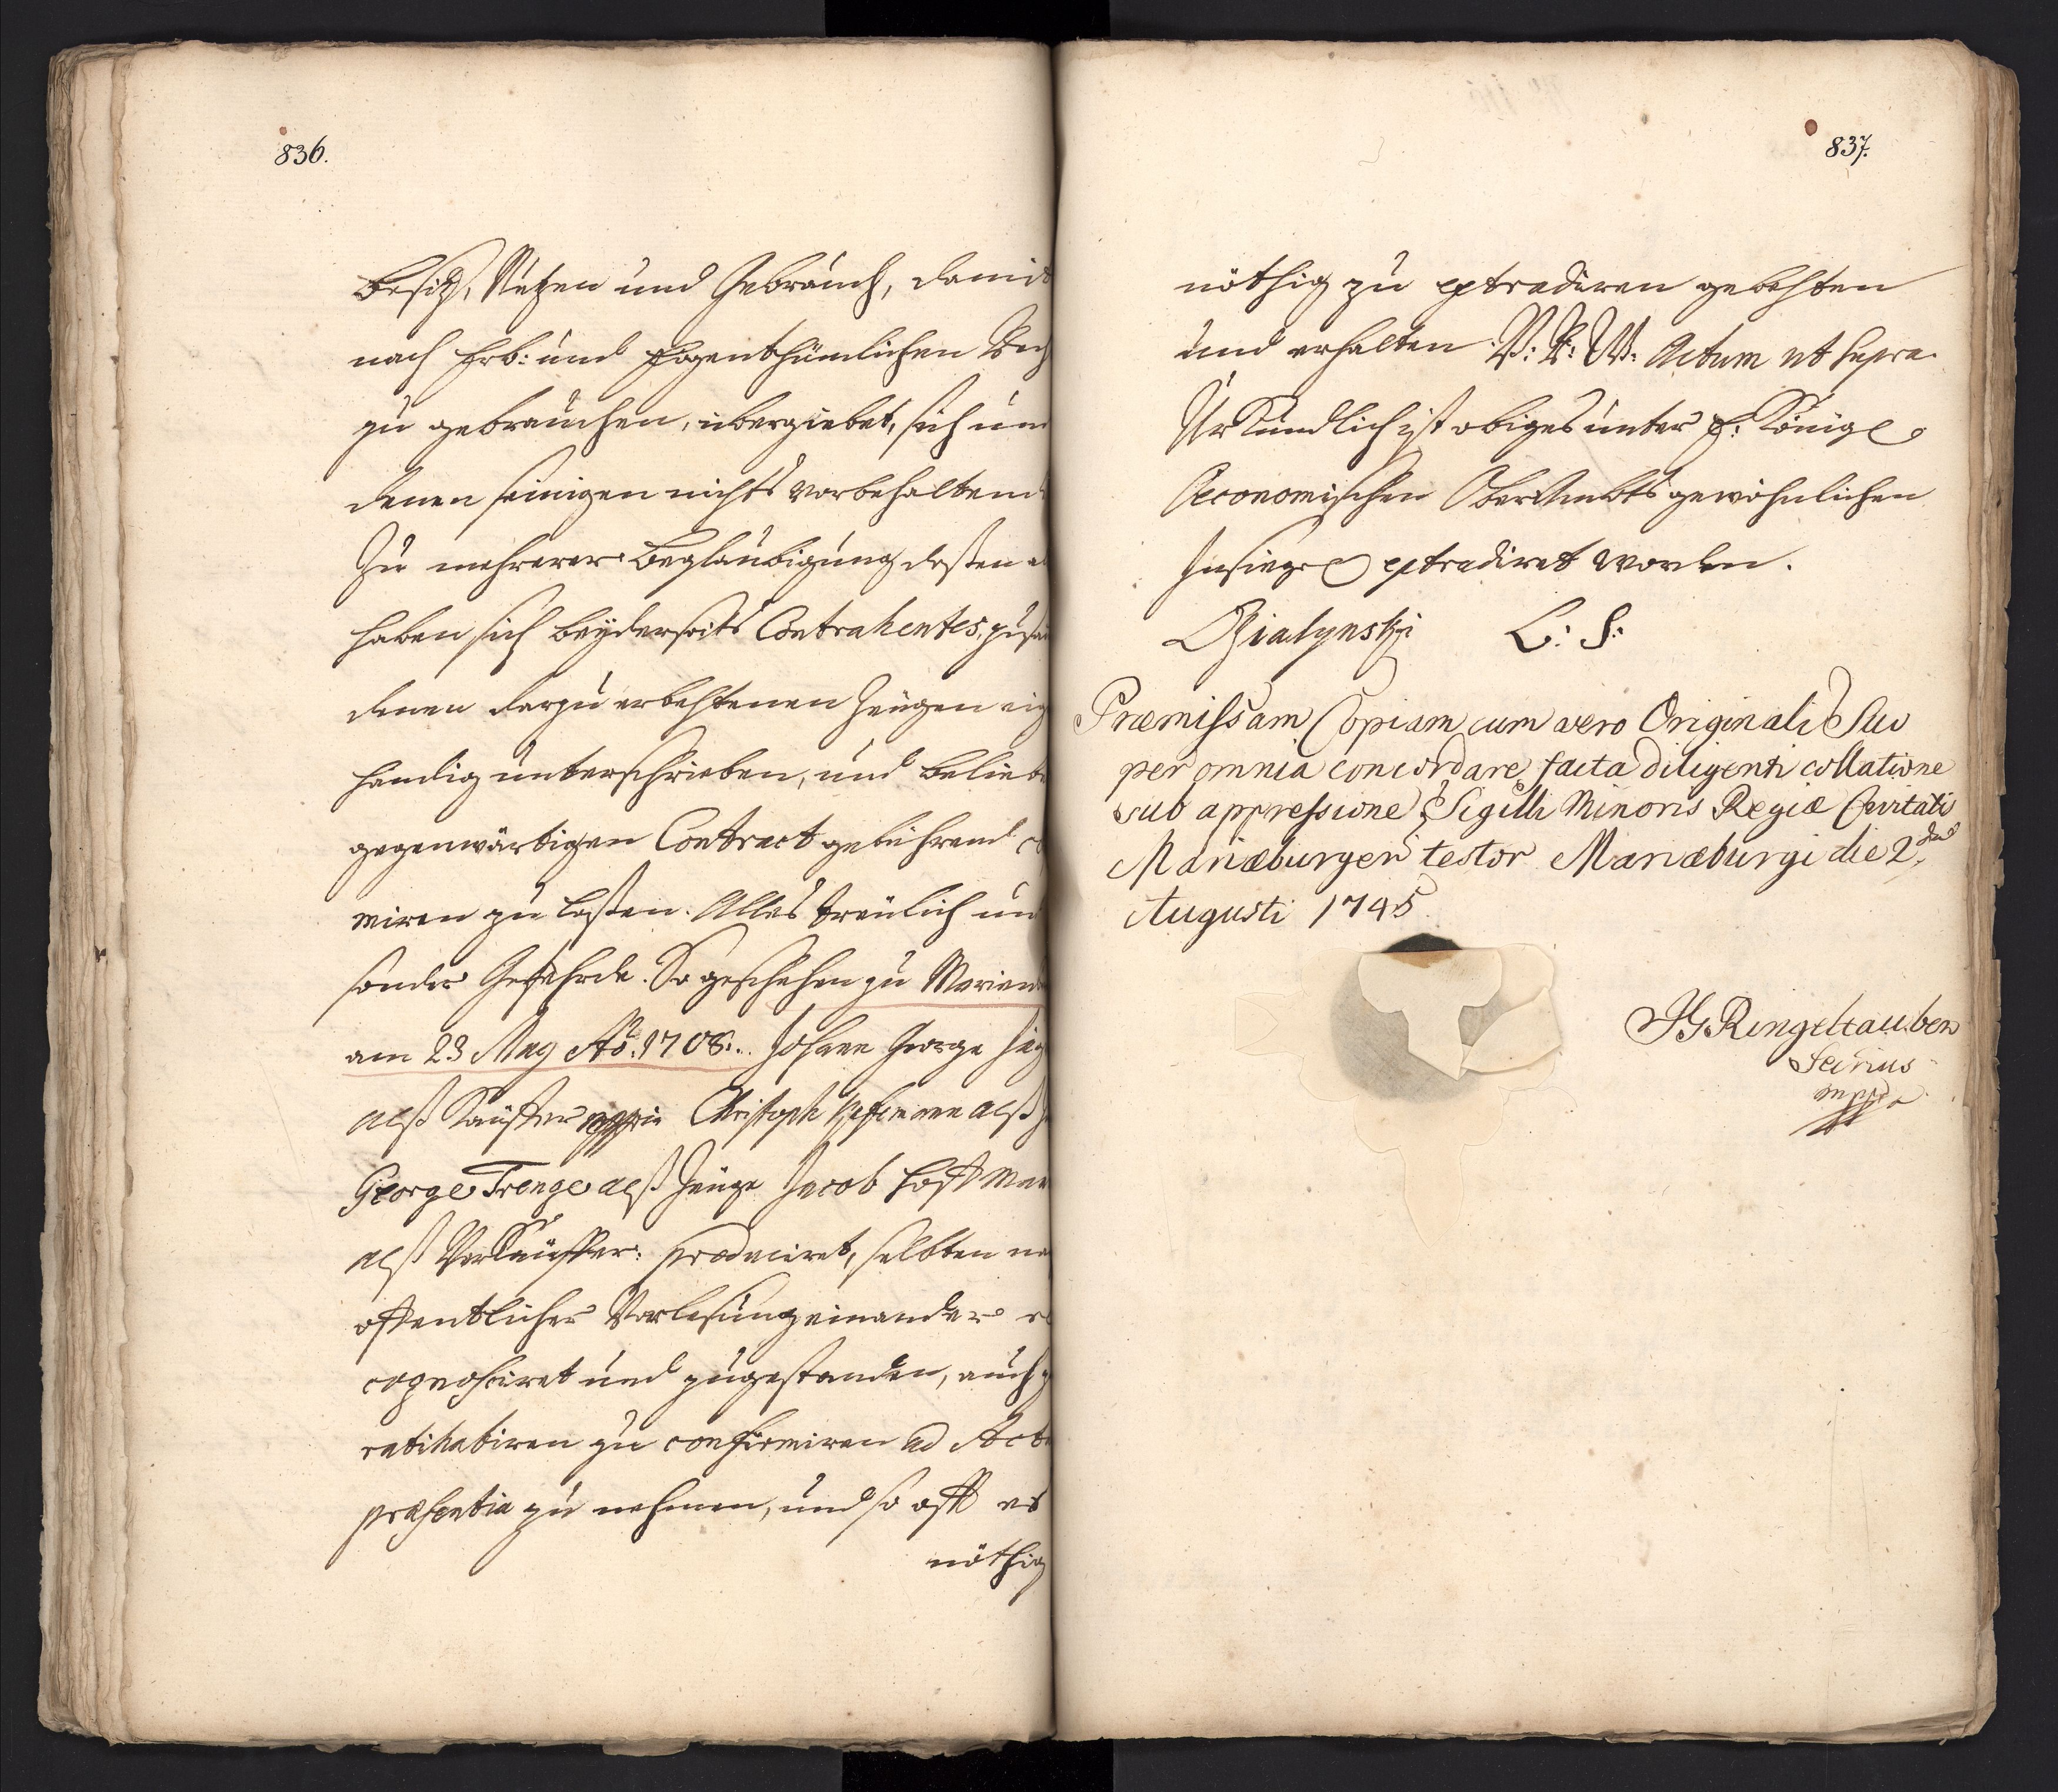 836.
besitz, Nutzen und Gebrauch, damit
nach Erb: und Eygenthümlichen Rech
zu gebrauchen, übergiebet, sich und
denen seinigen nichts vorbehaltend
Zu mehrerer Beglaubigung deßen
haben sich beyderseits Contrahentes,
denen darzu erbehtenen Zeugen eig
händig unterschrieben, und beliebt
gegenwärtigen Contract gebührend
miren zu laßen. Alles treülich und
sonder Gefehrde. So geschehen zu Marienb
am 23 May Ao. 1708. Johann George
alß Käuffer mppria Christoph alß
George Trenge alß Zeüge Jacob Hoffman
alß Verkäuffer: produciret, selbten na
öffentlicher Verlesung einander re
cognosciret und zugestanden, auch
ratihabiren zu confirmiren ad Acta
præsentia zu nehmen, und so offt es
nöthig
837.
nöthig zu extradiren gebehten
und erhalten V: R: W: Actum ut supra.
Urkundlich ist obiges unter E: Königl
Œconomischen OberAmbts gewöhnlichen
Insiegel extradiret worden.
Dzialynski L: S:
Præmissam Copiam cum vero Originali Suo
per omnia concordare facta diligenti collatione
sub appressione Sigilli Minoris Regiæ Civitatis
Mariæburgen testor Mariæburgi die 2da
Augusti 1745
JG Ringeltauben
Secrius
mppria